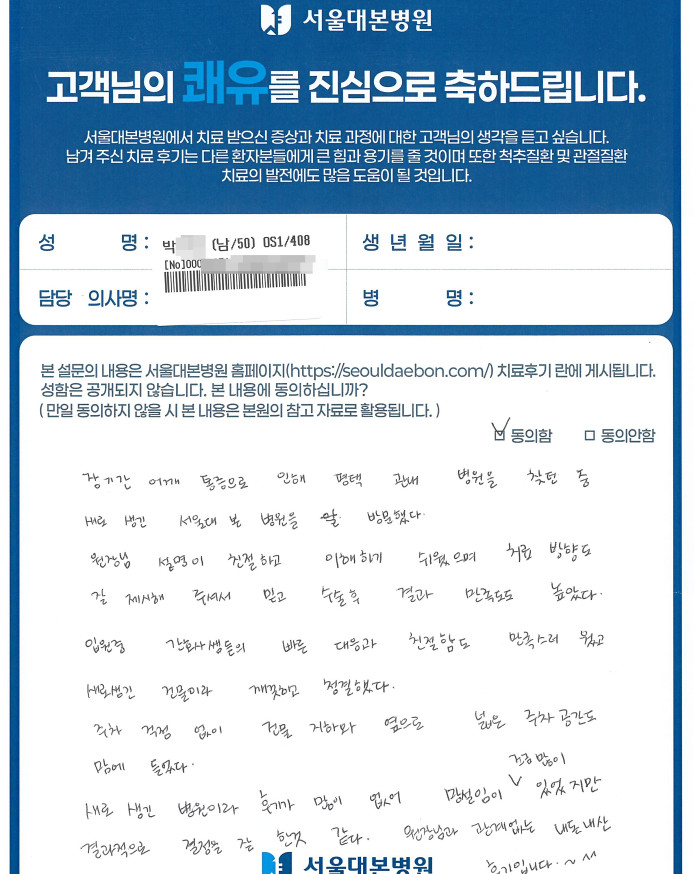 서울대본병원
고객님의 쾌유를 진심으로 축하드립니다.
서울대본병원에서 치료 받으신 증상과 치료 과정에 대한 고객님의 생각을 듣고 싶습니다.
남겨 주신 치료 후기는 다른 환자분들에게 큰 힘과 용기를 줄 것이며 또한 척추질환 및 관절질환
치료의 발전에도 많음 도움이 될 것입니다.
성 명 : 박 (남/50) OS1/408
[No]000
생 년 월 일 :
담당 의사명 :
병 명 :
본 설문의 내용은 서울대본병원 홈페이지(https://seouldaebon.com/) 치료후기 란에 게시됩니다.
성함은 공개되지 않습니다. 본 내용에 동의하십니까?
( 만일 동의하지 않을 시 본 내용은 본원의 참고 자료로 활용됩니다. )
동의함 동의안함
장기간 어깨 통증으로 인해 평택 관내 병원을 찾던 중
새로 생긴 서울대 본 병원을 방문했다.
원장님 설명이 친절하고 이해하기 쉬웠으며 치료 방향도
잘 제시해 주셔서 믿고 수술 후 결과 만족도도 높았다.
입원중 간호사쌤들의 빠른 대응과 친절함도 만족스러 웠고
새로생긴 건물이라 깨끗하고 청결했다.
주차 걱정 없이 건물 지하와 옆으로 넓은 주차 공간도
맘에 들었다.
새로 생긴 병원이라 후기가 많이 없어 망설임이 조금 많이 있었지만
결과적으로 결정을 잘 한것 같다. 원장님과 관계없는 내돈내산
후기입니다.~^^
서울대본병원